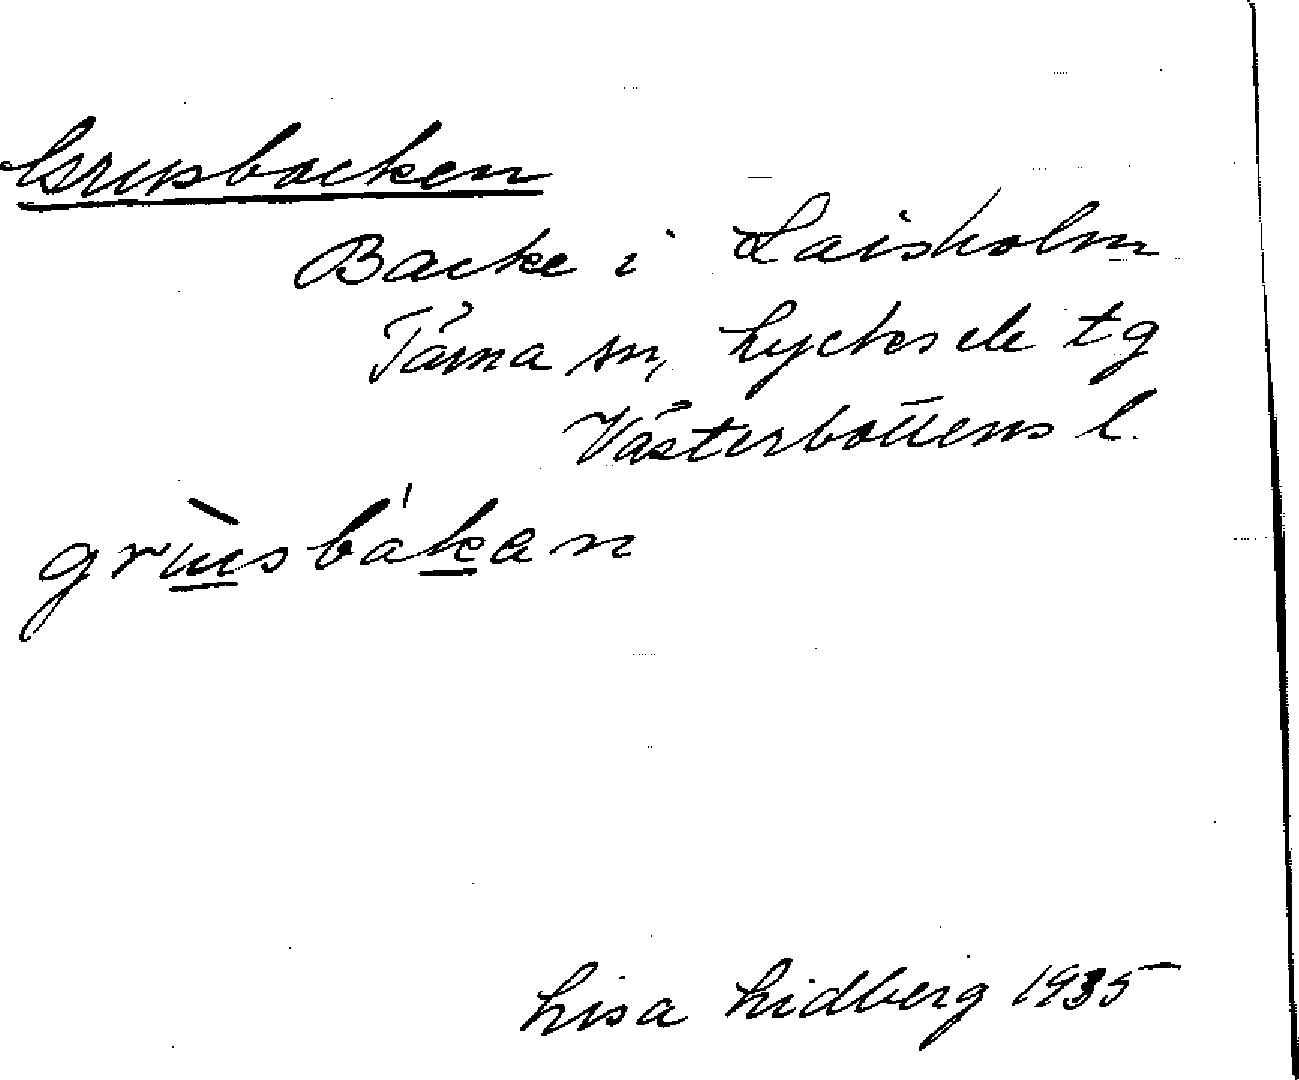 Grusbacken
Backe i Laisholm
Tärna sn, Lycksele tg
Västerbottens l.
grùsbákan
Lisa Lidberg 1935